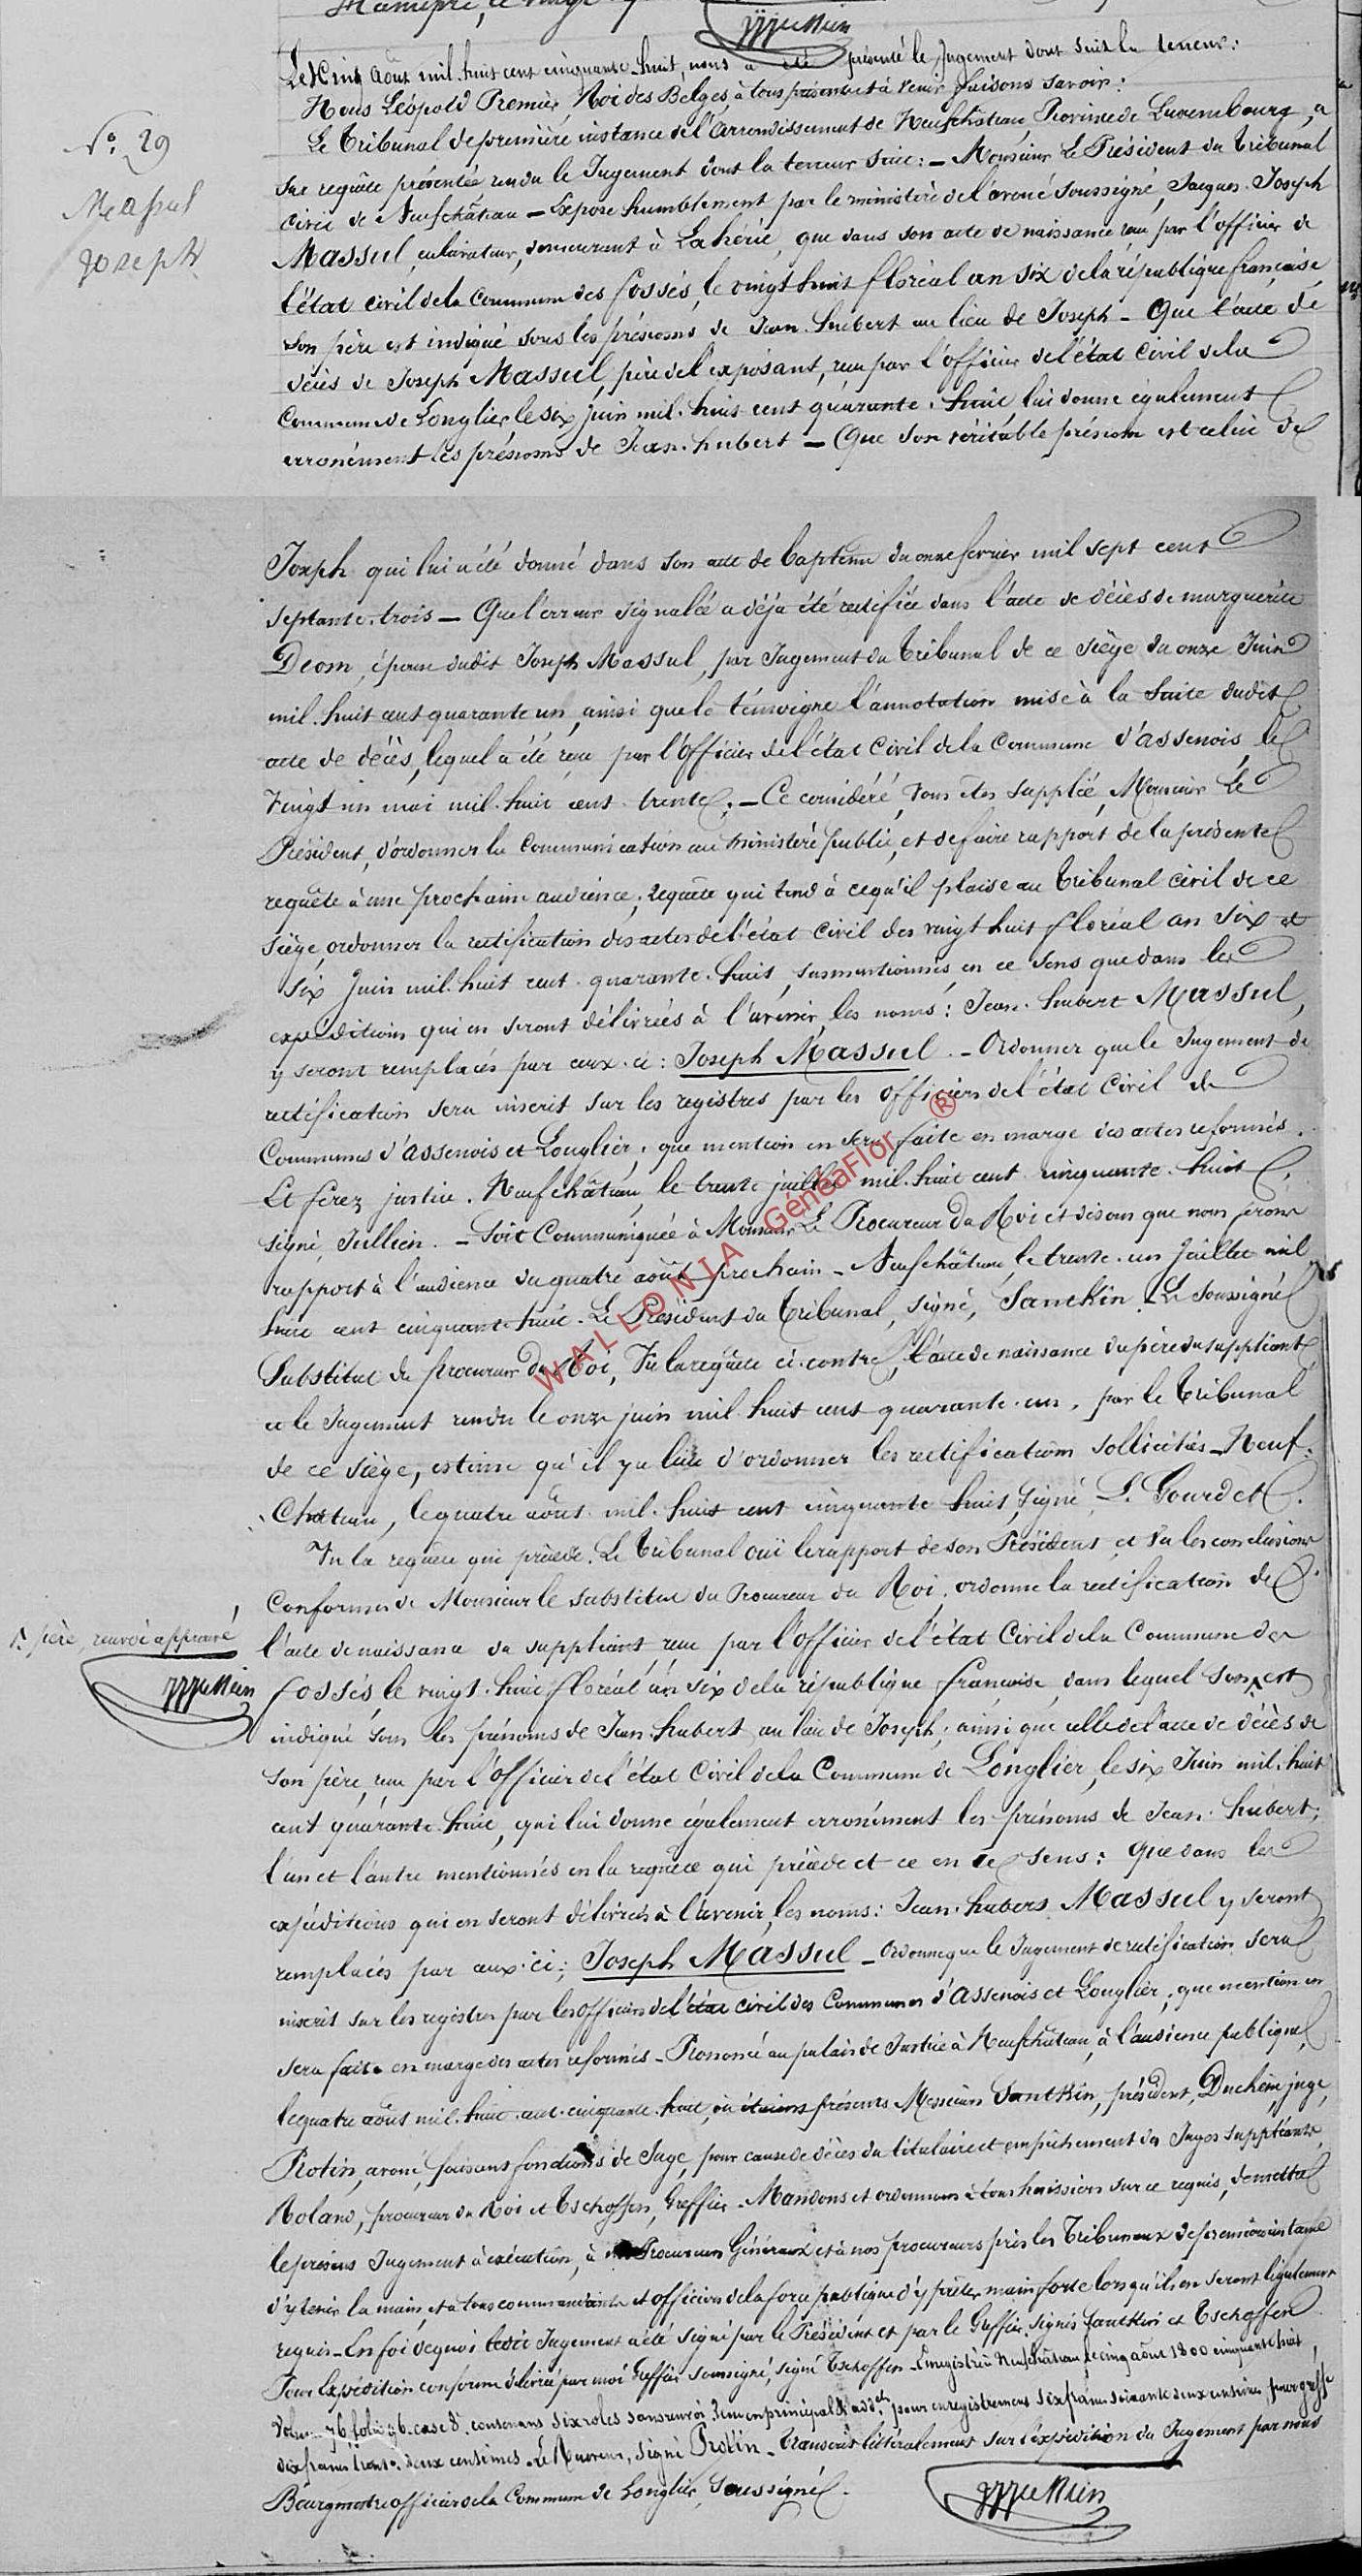 Mamepré, le vingt
Le Cinq août mil huit cent cinquante-huit, nous a été présenté le Jugement dont suit la teneur:
Nous Léopold Premier, Roi des Belges, à tous présents et à venir faisons savoir:
N° 29
Massul
Joseph
Le Tribunal de première instance de l'arrondissement de Neufchâteau, Province de Luxembourg, a
sur requête présentée rendu le Jugement dont la teneur suit: — Monsieur Le Président du Tribunal
civil de Neufchâteau — Expose humblement par le ministère de l'avoué soussigné, Jacques-Joseph
Massul, cultivateur, demeurant à Lahérie, que dans son acte de naissance reçu par l'officier de
l'état civil de la Commune des fossés, le vingt huit floréal an six de la république française,
son père est indiqué sous les prénoms de Jean-hubert au lieu de Joseph — Que l'acte de
décès de Joseph Massul, père de l'exposant, reçu par l'officier de l'état civil de la
Commune de Longlier le six juin mil-huit cent quarante-huit lui donne également
erronément les prénoms de Jean-hubert — Que son véritable prénom est celui de
Joseph qui lui a été donné dans son acte de baptême du onze fevrier mil sept cent
septante-trois — Que l'erreur signalée a déjà été rectifiée dans l'acte de décès de marguerite
Deom, épouse dudit Joseph Massul, par Jugement du Tribunal de ce siège du onze Juin
mil-huit cent quarante un, ainsi que le témoigne l'annotation mise à la suite dudit
acte de décès, lequel a été reçu par l'officier de l'état civil de la Commune d'assenois, le
vingt un mai mil-huit cent trente; — Ce considéré, vous êtes supplié, Monsieur Le
Président, d'ordonner la communication au ministère public, et de faire rapport de la présente
requête à une prochaine audience; requête qui tend à ce qu'il plaise au Tribunal civil de ce
siège, ordonner la rectification des actes de l'état civil des vingt huit floréal an six et
six Juin mil-huit cent quarante-huit, susmentionnés, en ce sens que dans les
expéditions qui en seront délivrées à l'avenir, les noms: Jean-hubert Massul,
y seront remplacés par ceux-ci: Joseph Massul. — Ordonner que le Jugement de
rectification sera inscrit sur les registres par les officiers de l'état civil de
Communes d'assenois et Longlier, que mention en sera faite en marge des actes reformés.
Et ferez justice. Neufchâteau, le trente juillet mil-huit cent cinquante-huit,
signé, Jullien. — Soit Communiquée à Monsieur Le Procureur du Roi et disons que nous ferons
rapport à l'audience du quatre août prochain — Neufchâteau, le trente-un Juillet mil
huit cent cinquante-huit — Le Président du Tribunal, signé, Santkin. — Le Soussigné
Substitut du procureur du Roi, Vu la requête ci-contre, l'acte de naissance du père du suppliant
et le Jugement rendu le onze juin mil-huit cent quarante-un, par le Tribunal
de ce siège, estime qu'il y a lieu d'ordonner les rectifications sollicitées — Neuf-
Château, le quatre août mil-huit cent cinquante-huit, signé, L. Gourdet.
Vu la requête qui précède. Le Tribunal ouï le rapport de son Président et vu les conclusions
Conformes de Monsieur le substitut du Procureur du Roi, ordonne la rectification de
1. père, renvoi approuvé
l'acte de naissance du suppliant, reçu par l'officier de l'état Civil de la Commune des
fossés, le vingt-huit floréal an six de la république française, dans lequel son est
indiqué sous les prénoms de Jean-hubert au lieu de Joseph; ainsi que celle de l'acte de décès de
son père, reçu par l'officier de l'état Civil de la Commune de Longlier, le six Juin mil-huit
cent quarante-huit, qui lui donne également erronément les prénoms de Jean-hubert;
l'un et l'autre mentionnés en la requête qui précède et ce en ce sens: Que dans les
expéditions qui en seront délivrées à l'avenir, les noms: Jean-hubert Massul y seront
remplacés par ceux-ci: Joseph Massul — Ordonne que le Jugement de rectification sera
inscrit sur les registres par les officiers de l'état civil des Communes d'assenois et Longlier, que mention en
sera faite en marge des actes reformés — Prononcé au palais de Justice à Neufchâteau, à l'audience publique,
le quatre août mil-huit-cent-cinquante-huit, où étaient présents Messieurs Santkin, président, Duchêne, juge,
Protin, avoué, faisant fonctions de Juge, pour cause de décès du titulaire et empêchement des Juges suppléants,
Roland, procureur du Roi et Tschoffen, Greffier — Mandons et ordonnons à tous huissiers sur ce requis, de mettre
le présent Jugement à exécution, à nos Procureurs Généraux et à nos procureurs près les Tribunaux de première instance
d'y tenir la main, et à tous commandants et officiers de la force publique d'y prêter main forte lorsqu'ils en seront légalement
requis — En foi de quoi ledit Jugement a été signé par le Président et par le Greffier, signés Santkin et Tschoffen
Pour Expédition conforme délivrée par moi Greffier soussigné, signé Tschoffen — Enregistré à Neufchâteau le cinq août 1800 cinquante huit,
Volume 76, folio 96, case 8, contenant six roles sans renvoi, Reçu en principal & add.els pour enregistrement six francs soixante deux centimes, pour greffe
dix francs trente-deux centimes — Le Receveur, signé Protin — Transcrit littéralement sur l'expédition du Jugement par nous
Bourgmestre officier de la Commune de Longlier, soussigné.
WALLONIA GénéaFlor ®